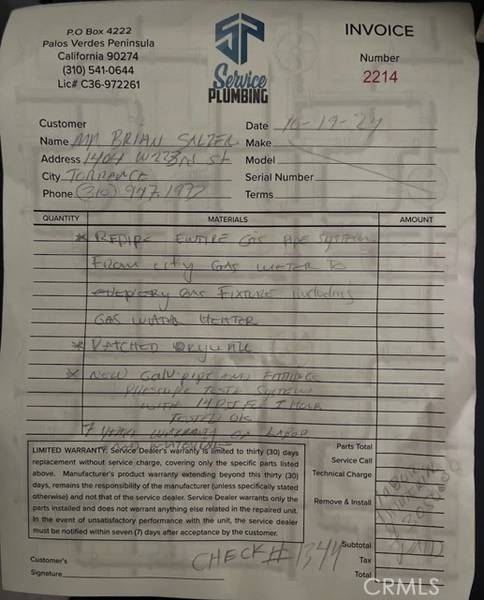 P.O Box 4222
Palos Verdes Peninsula
California 90274
(310) 541-0644
Lic# C36-972261
SP
Service
PLUMBING
INVOICE
Number
2214
Customer
Name MR BRIAN
Address 1404 W 223
City TORRANCE
Phone (310)
Date 10-19-24
Make
Model
Serial Number
Terms
QUANTITY MATERIALS AMOUNT
* REPIPE ENTIRE GAS PIPE SYSTEM
FROM CITY GAS METER TO
EVERY GAS FIXTURE INCLUDING
GAS WATER HEATER
* PATCHED DRYWALL
* NEW GALV PIPE AND FITTINGS
PRESSURE TESTED SYSTEM
WITH 14 PSI FOR 1 HOUR
TESTED OK
7 YEARS WARRANTY ON LABOR
LIMITED WARRANTY: Service Dealer's warranty is limited to thirty (30) days
replacement without service charge, covering only the specific parts listed
above. Manufacturer's product warranty extending beyond this thirty (30)
days, remains the responsibility of the manufacturer (unless specifically stated
otherwise) and not that of the service dealer. Service Dealer warrants only the
parts installed and does not warrant anything else related in the repaired unit.
In the event of unsatisfactory performance with the unit, the service dealer
must be notified within seven (7) days after acceptance by the customer.
Parts Total
Service Call
Technical Charge
Remove & Install
Subtotal
Tax
Total
Customer's
Signature
CHECK# 1344
CRMLS